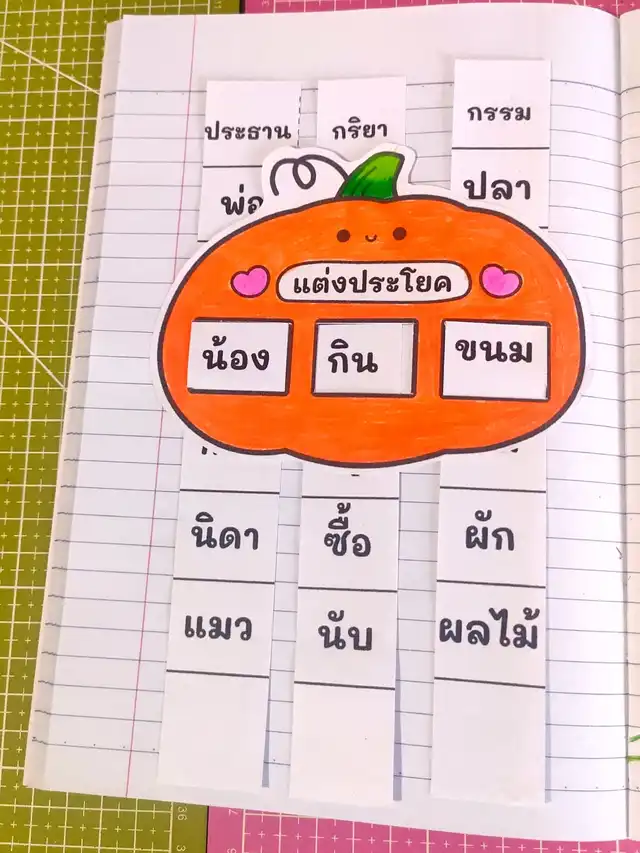 ประธาน กริยา กรรม
พ่อ ปลา
แต่งประโยค
น้อง กิน ขนม
นิดา ซื้อ ผัก
แมว นับ ผลไม้